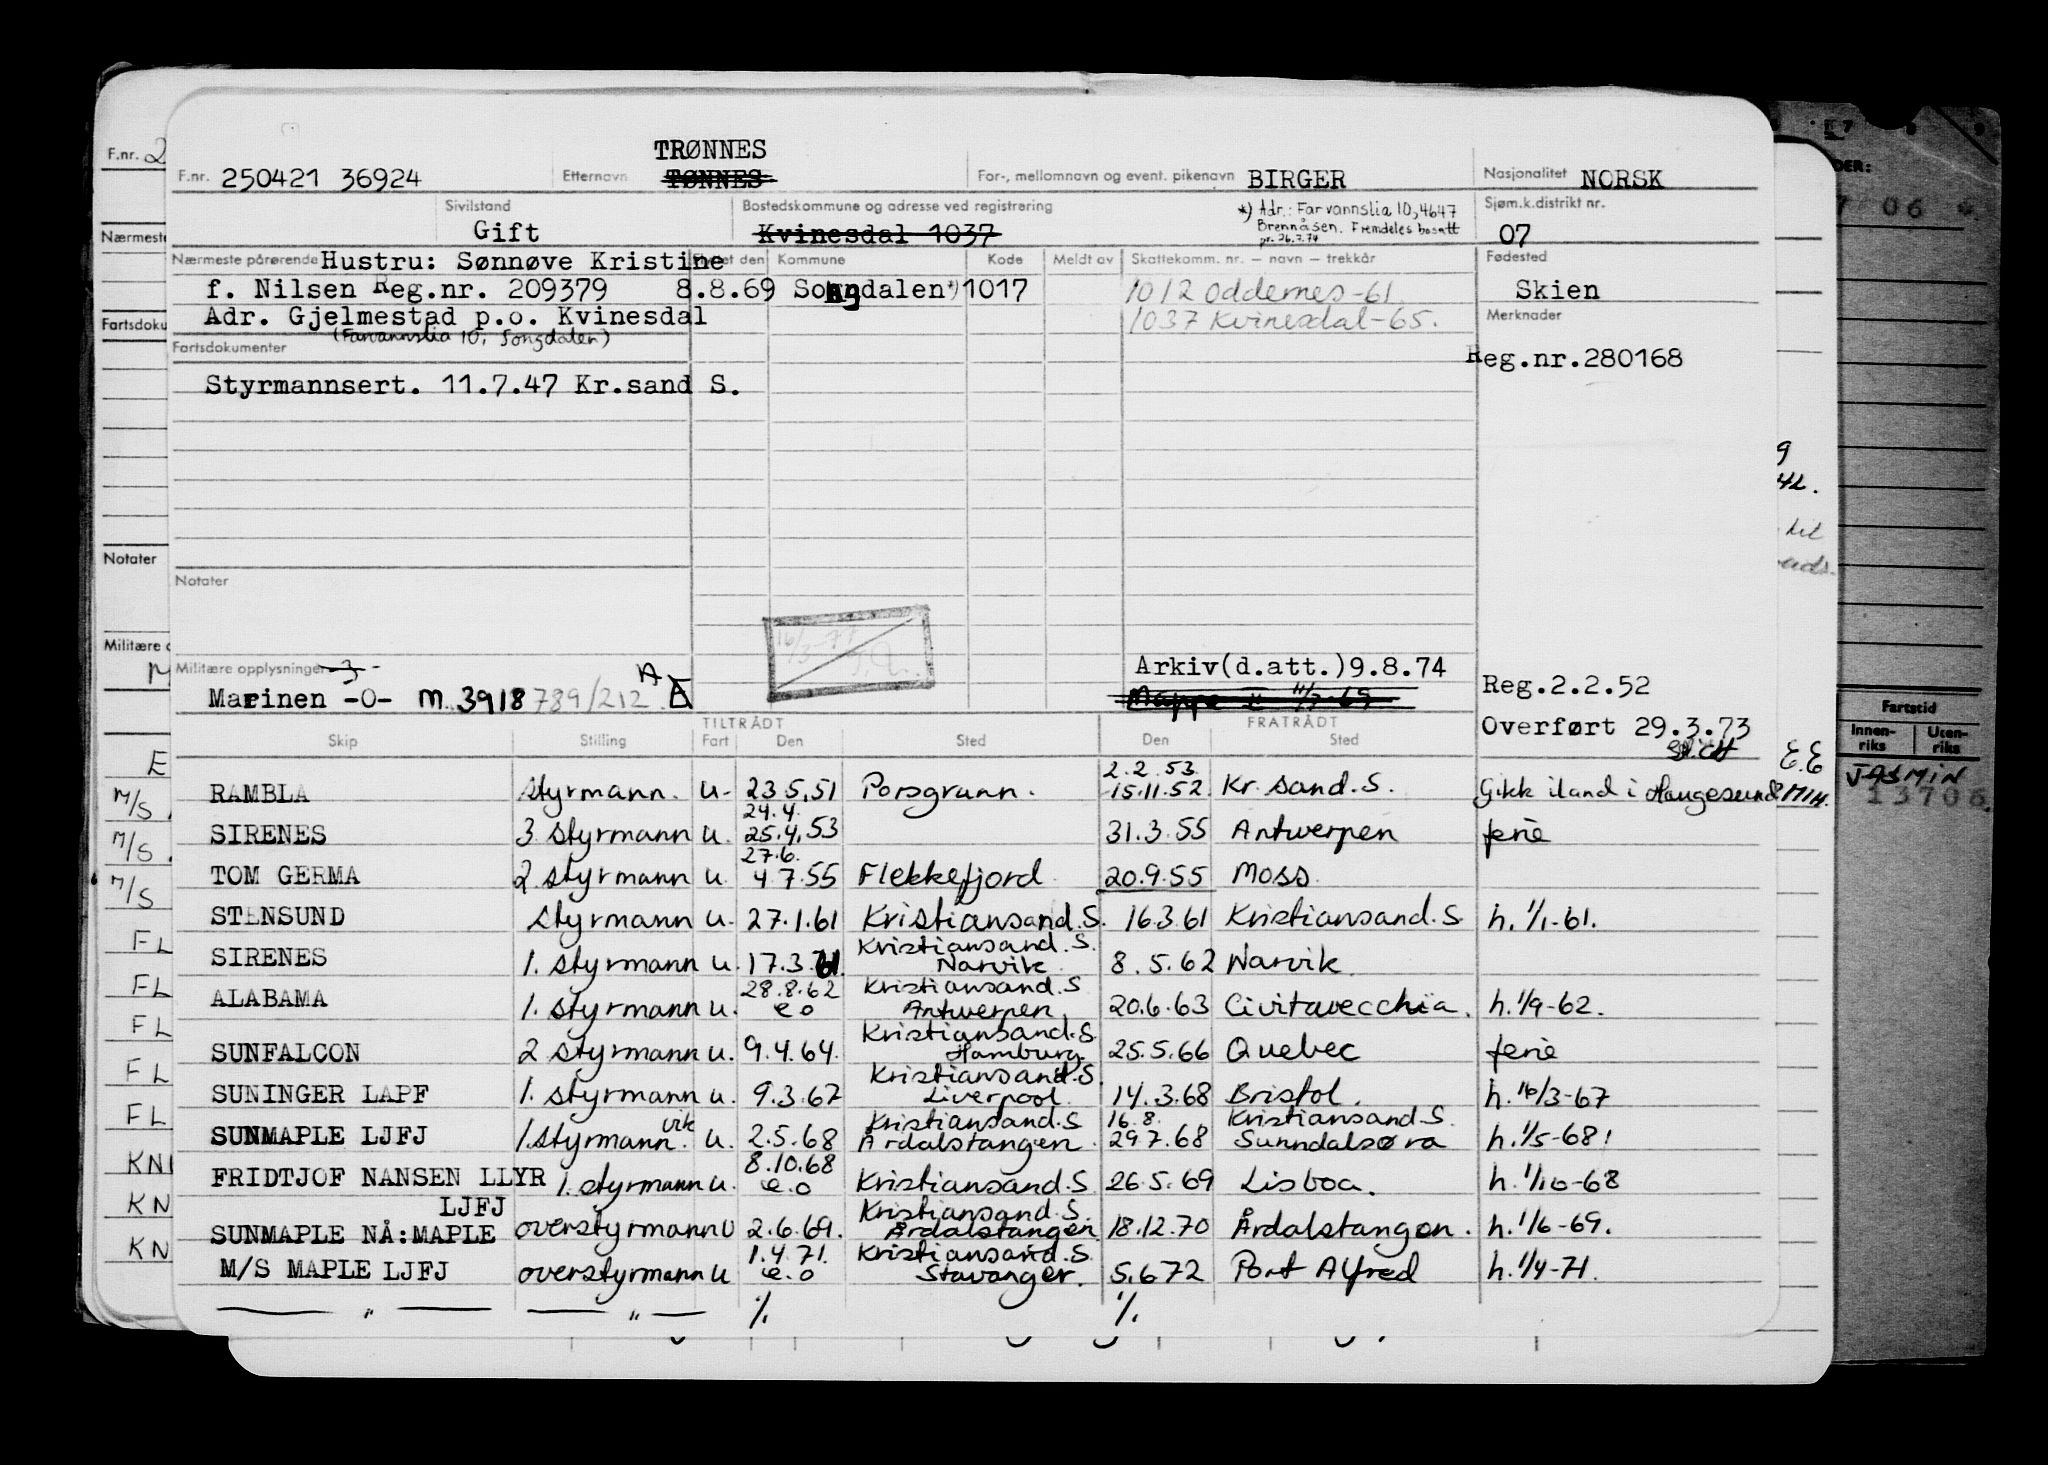 TRØNNES
F.nr. 250421 36924 Etternavn TØNNES For-, mellomnavn og event. pikenavn BIRGER Nasjonalitet NORSK
Sivilstand Gift Bostedskommune og adresse ved registrering Kvinesdal 1037 *) Adr.: Farvannslia 10, 4647 Sjøm.k.distrikt nr. 07
Brennåsen. Fremdeles bosatt
pr. 26.7.74
Nærmeste pårørende Hustru: Sønnøve Kristine Flyttet den Kommune Kode Meldt av Skattekomm. nr. – navn – trekkår Fødested
f. Nilsen Reg.nr. 209379 8.8.69 Songdalen *) 1017 1012 Oddernes-61 Skien
Adr. Gjelmestad p.o. Kvinesdal 1037 Kvinesdal-65. Merknader
(Farvannslia 10, Songdalen)
Fartsdokumenter Reg.nr.280168
Styrmannsert. 11.7.47 Kr.sand S.
Notater
16/3-77
Militære opplysninger -3- Arkiv(d.att.)9.8.74
Marinen -O- M. 3918 789/212 A Reg.2.2.52
TILTRÅDT FRATRÅDT Overført 29.3.73
Skip Stilling Fart Den Sted Den Sted
2.2.53
RAMBLA styrmann. u. 23.5.51 Porsgrunn. 15.11.52 Kr. sand. S. Gikk iland i Haugesund
24.4.
SIRENES 3 styrmann u. 25.4.53 31.3.55 Antwerpen ferie
27.6.
TOM GERMA 2 styrmann u. 4.7.55 Flekkefjord 20.9.55 Moss
STENSUND styrmann u. 27.1.61 Kristiansand.S. 16.3.61 Kristiansand.S h. 1/1-61.
Kristiansand.S.
SIRENES 1. styrmann u. 17.3.61. Narvik 8.5.62 Narvik
28.8.62 Kristiansand.S
ALABAMA 1. styrmann u. e.o Antwerpen 20.6.63 Civitavecchia. h. 1/9-62.
Kristiansand.S
SUNFALCON 2 styrmann u. 9.4.64. Hamburg. 25.5.66 Quebec ferie
Kristiansand.S.
SUNINGER LAPF 1. styrmann u. 9.3.67 Liverpool. 14.3.68 Bristol. h. 16/3-67
vik Kristiansand.S 16.8. Kristiansand.S.
SUNMAPLE LJFJ 1.styrmann. u. 2.5.68 Årdalstangen. 29.7.68 Sunndalsøra h. 1/5-68!
8.10.68
FRIDTJOF NANSEN LLYR 1. styrmann u. e.o Kristiansand.S 26.5.69 Lisboa. h. 1/10-68
LJFJ Kristiansand.S.
SUNMAPLE NÅ:MAPLE overstyrmann u 2.6.69. Årdalstangen 18.12.70 Årdalstangen. h. 1/6-69.
1.4.71. Kristiansand.S
M/S MAPLE LJFJ overstyrmann u e.o Stavanger. 5.6.72 Port Alfred h. 1/4-71.
— " — — " — %. %.
F.nr. 2
Nærmeste
Fartsdoku
Notater
Militære o
M
E
M/S
M/S
M/S
FL
FL
FL
FL
FL
KN
KN
KN
E.E
MIH.
DER:
7 06
Fartstid
Innen-riks Uten-riks
JASMIN
13706